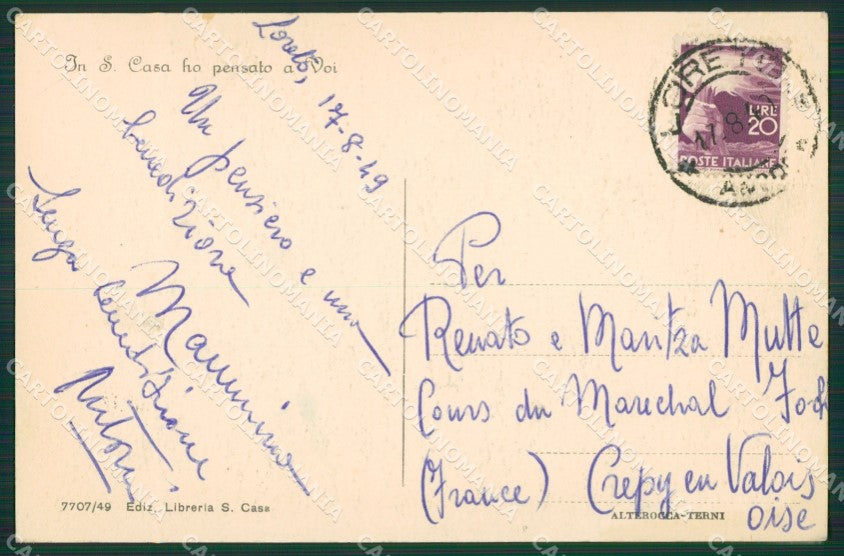 In S. Casa ho pensato a Voi
Loreto, 17-8-49
Un pensiero e una
benedizione
Mammina
Senza benedizione
LIRE
20
POSTE ITALIANE
17.8
Per
Renato e Maritza Mutte
Cours du Marechal Foch
(France) Crepy en Valois
oise
7707/49 Ediz. Libreria S. Casa
ALTEROCCA-TERNI
CARTOLINOMANIA